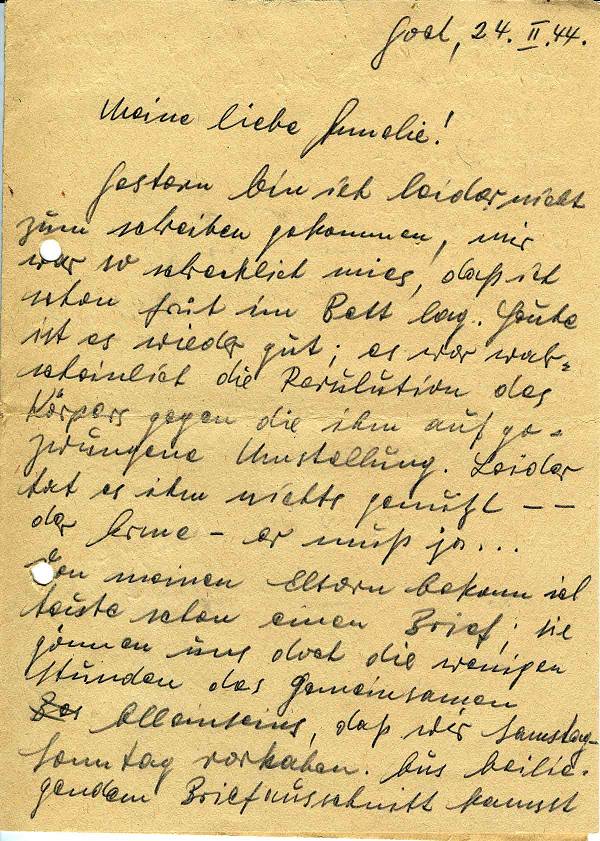 Goch, 24. II. 44.
Meine liebe Annelie!
Gestern bin ich leider nicht
zum schreiben gekommen, mir
war so schrecklich mies, daß ich
schon früh im Bett lag. Heute
ist es wieder gut; es war wah-
scheinlich die Revulution des
Körpers gegen die ihm aufge-
zwungene Umstellung. Leider
hat es ihm nichts genützt --
der Arme - er muß ja...
Von meinen Eltern bekam ich
heute schon einen Brief; sie
gönnen uns doch die wenigen
Stunden des gemeinsamen
Alleinseins, daß wir Samstag-
Sonntag vorhaben. Aus beilie-
gendem Briefausschnitt kannst